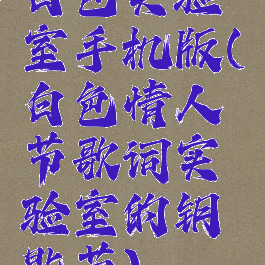 白色实验
室手机版(
白色情人
节歌词实
验室的钥
节)